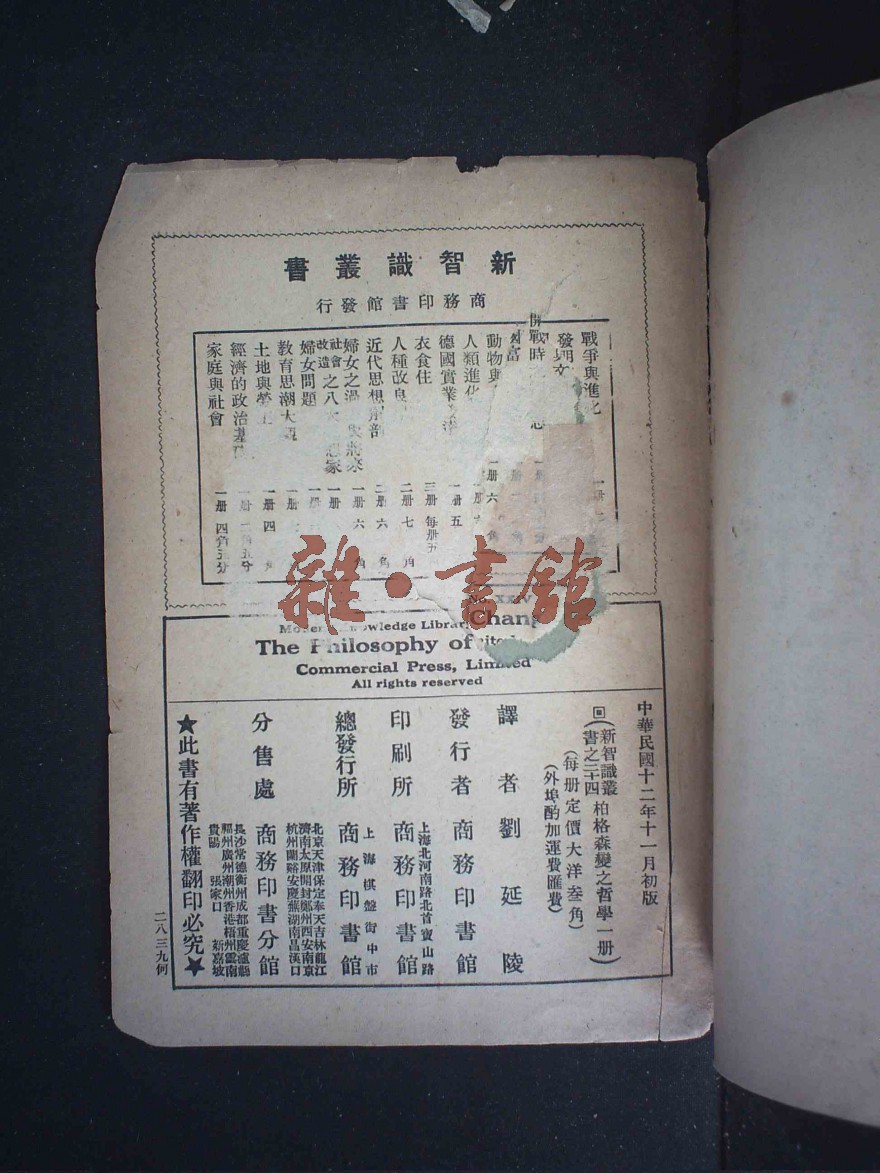 新智識叢書
商務印書館發行
戰爭與進化
發明
戰時
動物與 一册 六 角
人類進化
德國實業 一册 五
衣食住 三册 每册五
人種改良 二册 七 角
近代思想解剖 二册 六 角
婦女之過去與將來 一册 六 角
社會改造之八大思想家 一册
婦女問題 一册
教育思潮大觀 一册
土地與勞工 一册 四 角
經濟的政治基礎 一册 二角五分
家庭與社會 一册 四角五分
雜·書館
Modern Knowledge Library
The Philosophy of Change
Commercial Press, Limited
All rights reserved
中華民國十二年十一月初版
新智識叢書之二十四 柏格森變之哲學一册
(每册定價大洋叁角)
(外埠酌加運費匯費)
譯者 劉延陵
發行者 商務印書館
上海北河南路北首寶山路
印刷所 商務印書館
上海棋盤街中市
總發行所 商務印書館
北京天津保定奉天吉林龍江
濟南太原開封鄭州西安南京
杭州蘭谿安慶蕪湖南昌漢口
分售處 商務印書分館
長沙常德衡州成都重慶瀘縣
福州廣州潮州香港梧州雲南
貴陽 張家口 新嘉坡
★此書有著作權翻印必究★
二八三九何